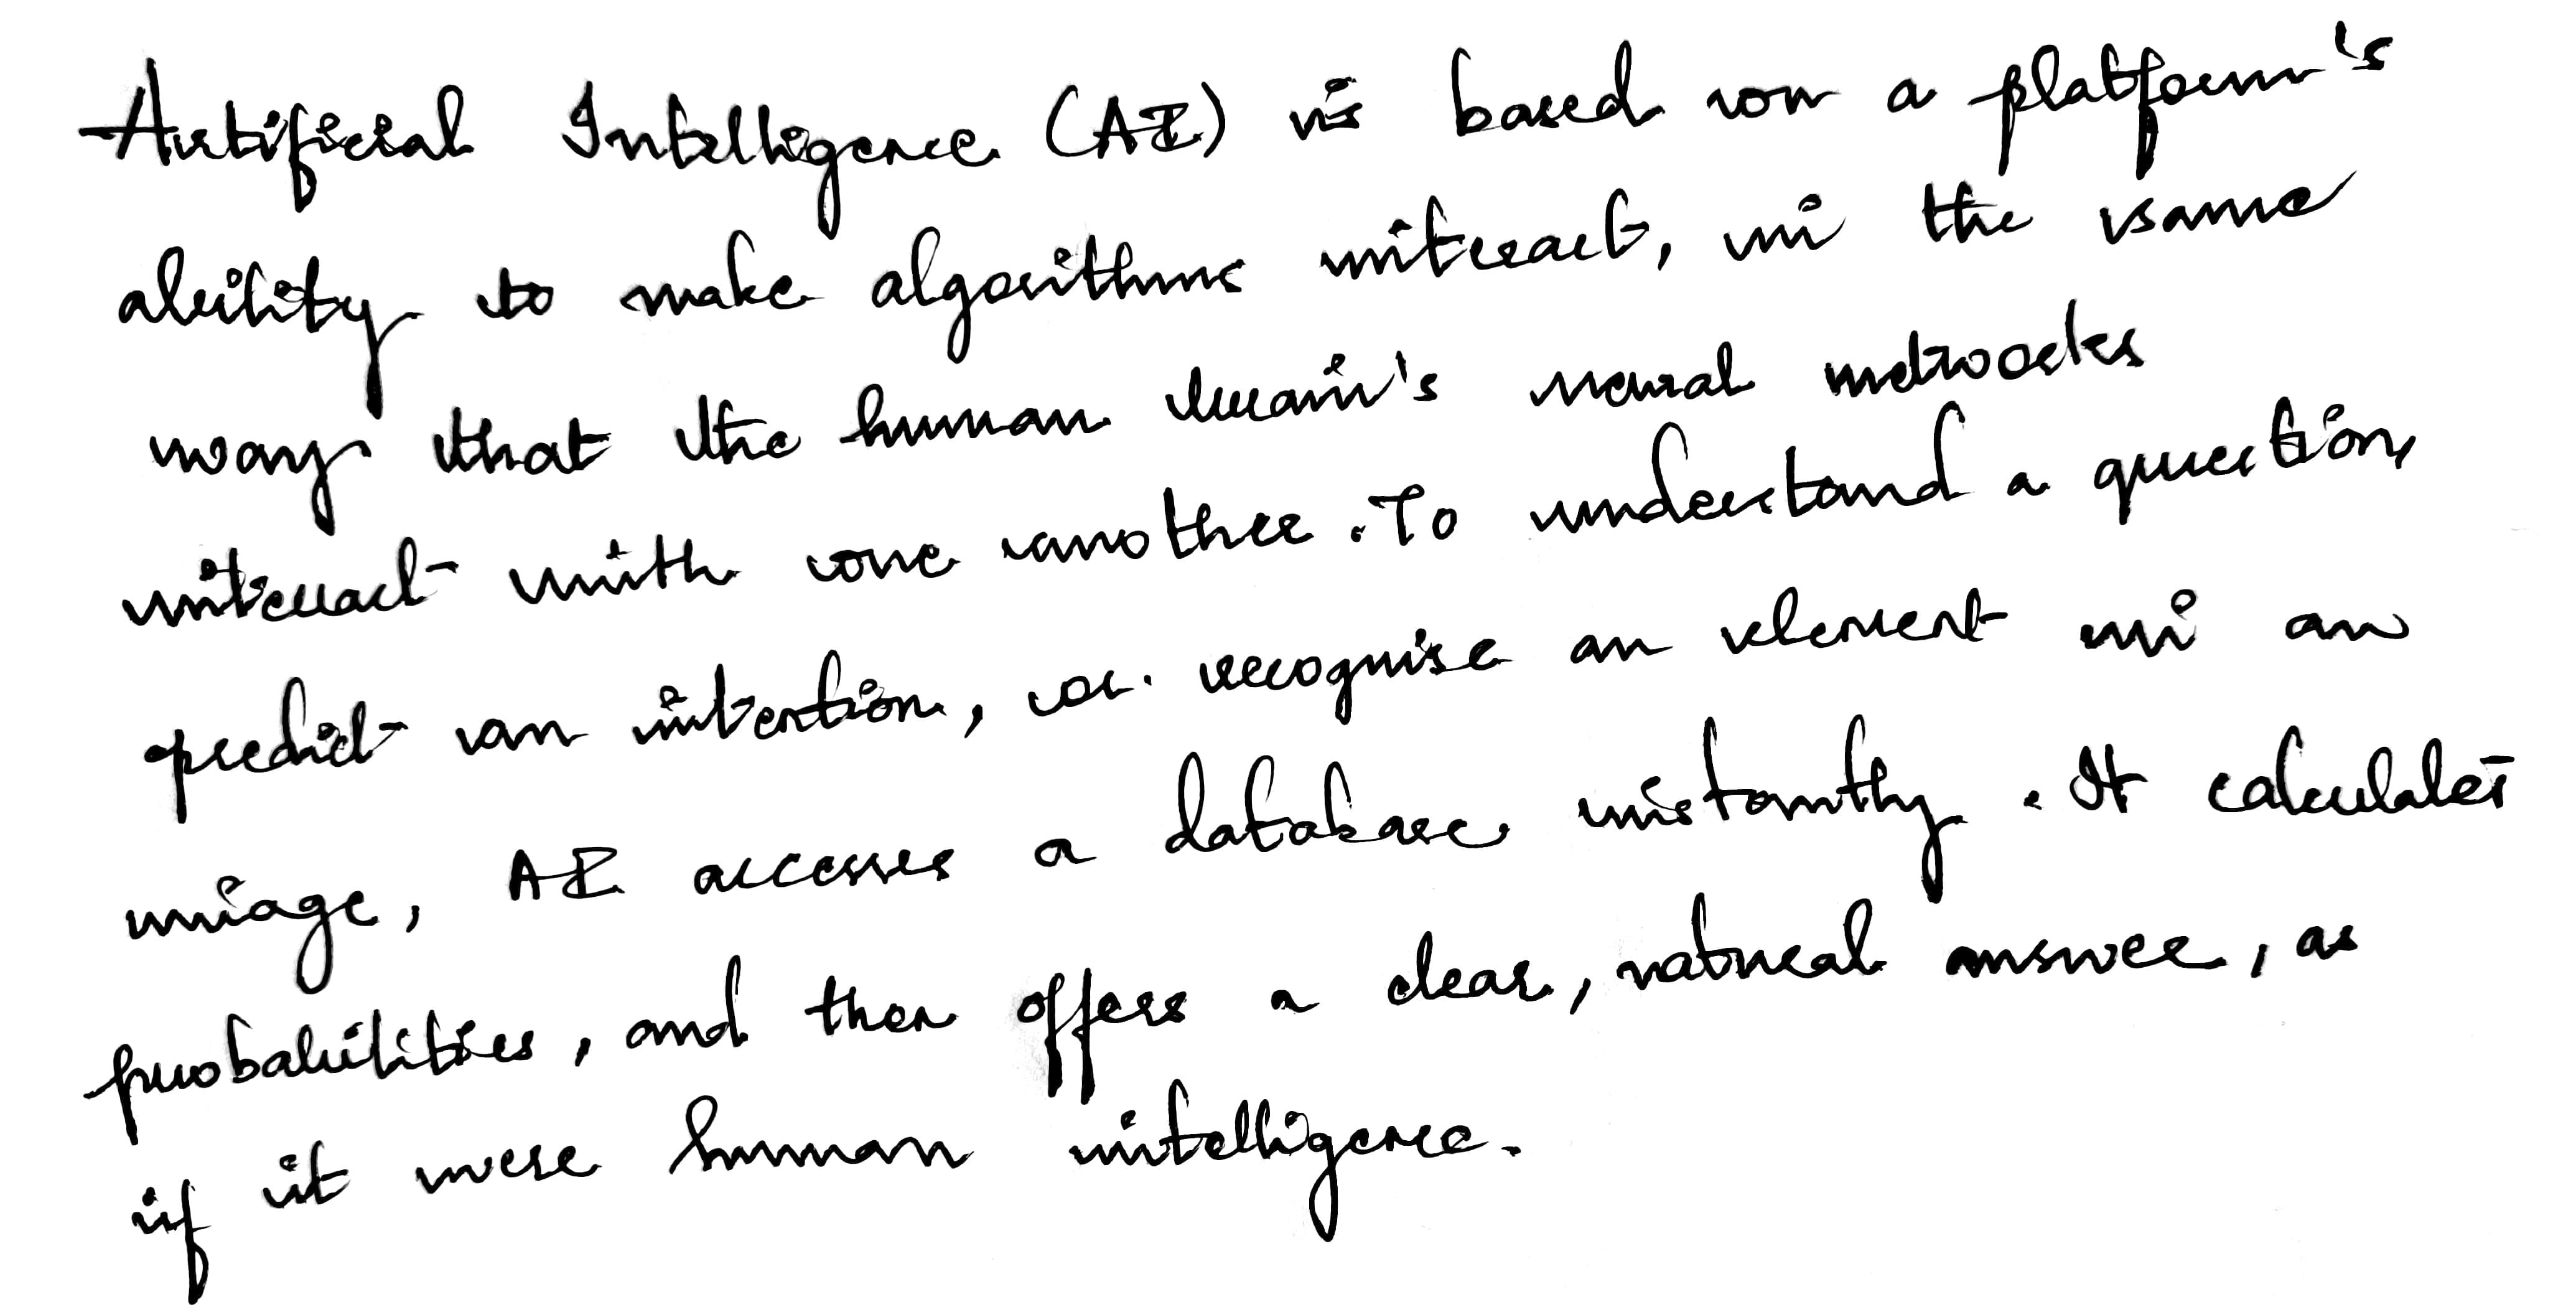 Artificial Intelligence (AI) is based on a platform's
ability to make algorithms interact, in the same
way that the human brain's neural networks
interact with one another. To understand a question,
predict an intention, or recognise an element in an
image, AI accesses a database instantly. It calculates
probabilities, and then offers a clear, natural answer, as
if it were human intelligence.